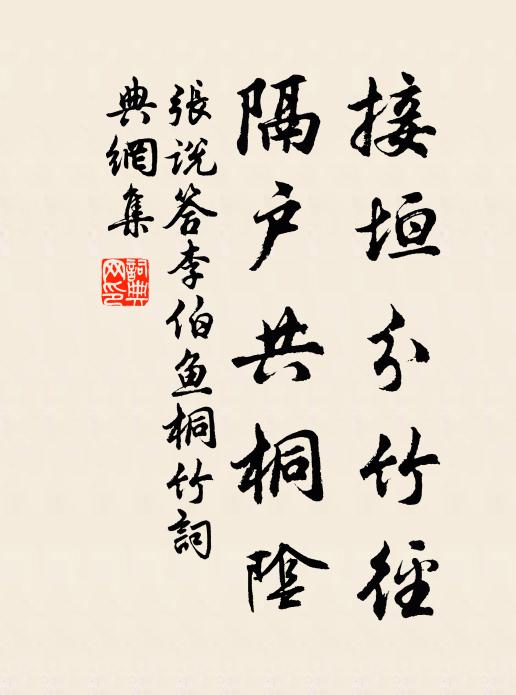 接垣分竹徑
隔户共桐陰
張説答李伯魚桐竹詞
典網集
詞典
网印